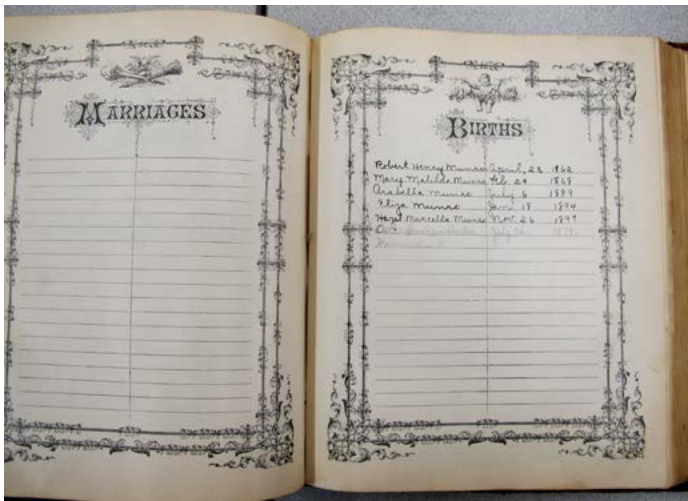 MARRIAGES
BIRTHS
Robert Henry Munro April, 28 1862
Mary Matilda Munro Feb. 29 1868
Arabella Munro July 6 1889
Eliza Munro Jan. 18 1894
Hazel Marcella Munro Nov. 26 1897
July